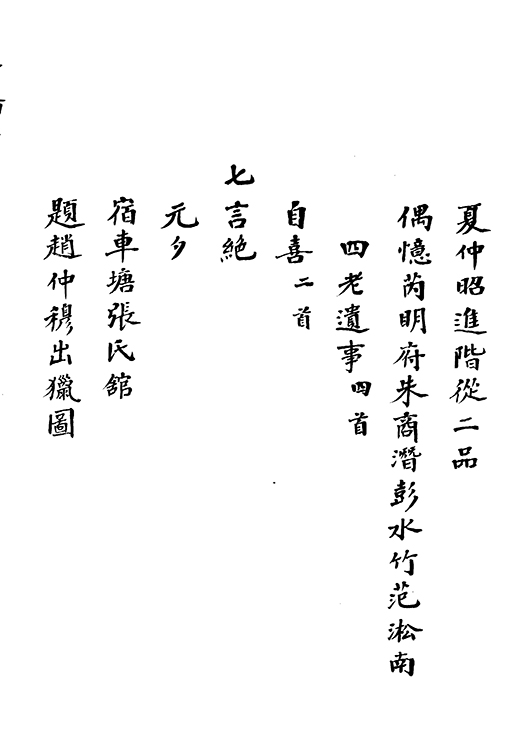 夏仲昭進階從二品
偶憶芮明府朱商潛彭水竹范淞南
四老遺事四首
自喜二首
七言絕
元夕
宿車塘張氏館
題趙仲穆出獵圖